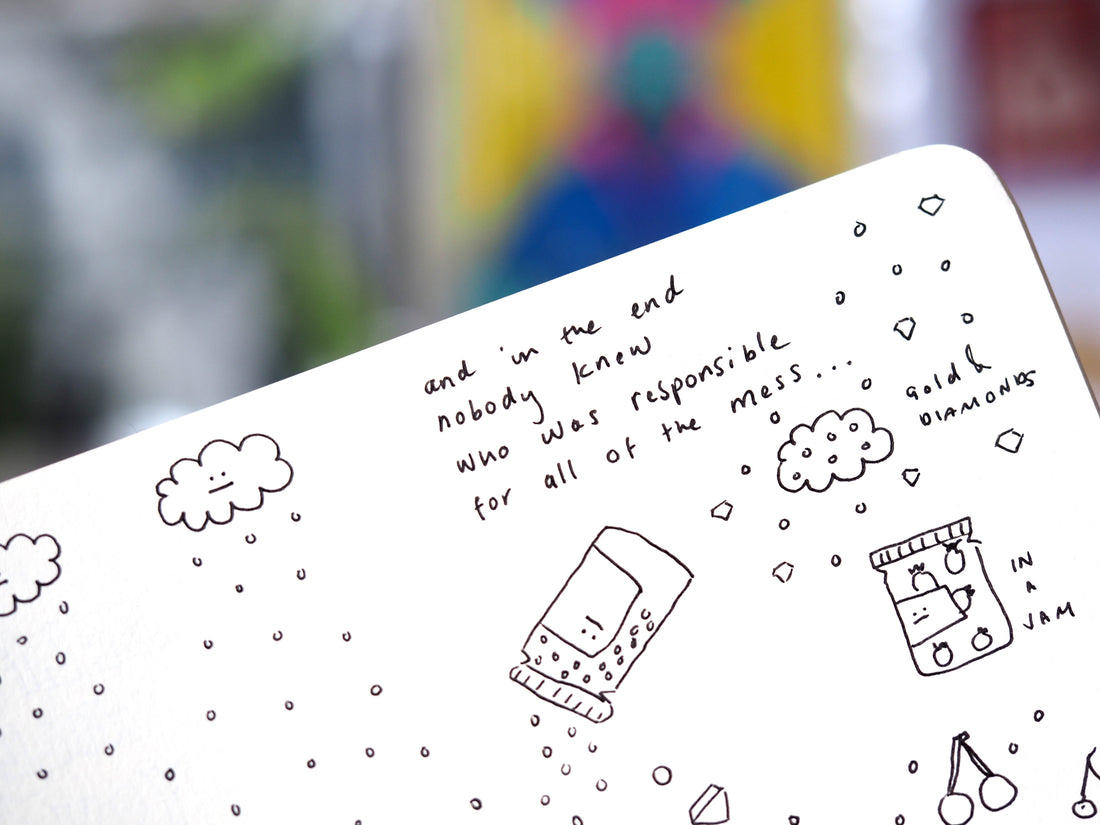 and in the end
nobody knew
who was responsible
for all of the mess...
gold &
DIAMONDS
IN
A
JAM